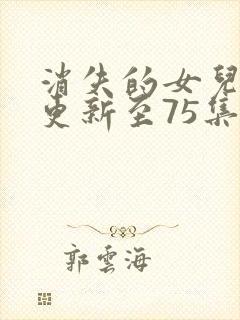 消失的女兒
更新至75集
郭雲海